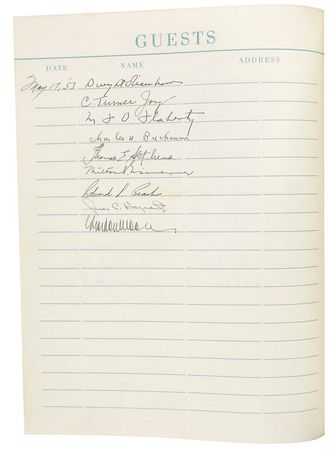 GUESTS
DATE NAME ADDRESS
May 17, 53 Dwight Eisenhower
C. Turner Joy
M F D Flaherty
Charles A. Buchanan
Thomas E. Stephens
Milton Eisenhower
Edward L. Beach
James C. Hagerty